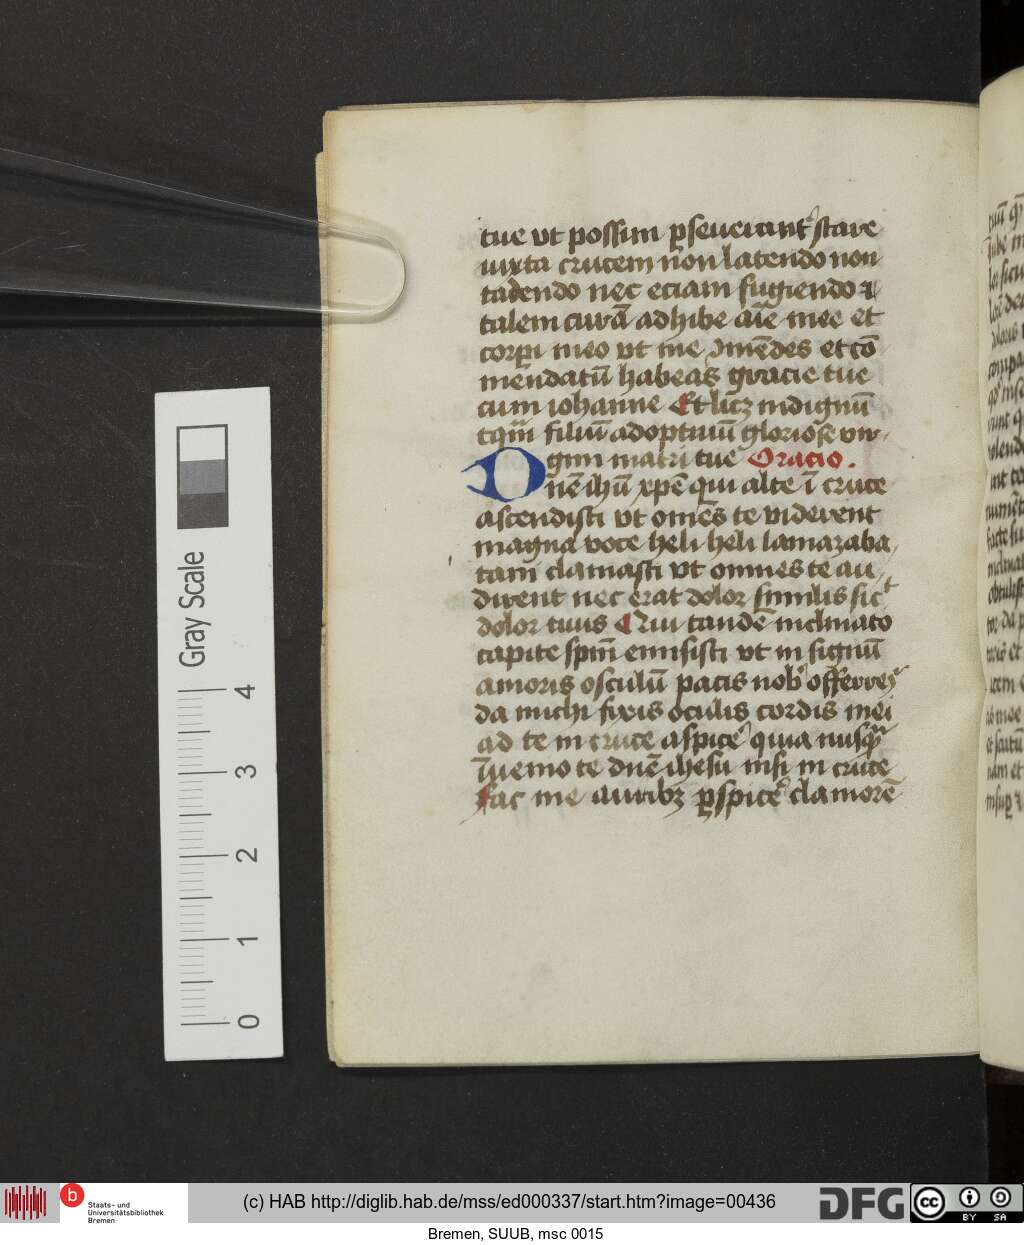 tue vt possim ꝑseueranter stare
iuxta crucem non latendo non
tadendo nec eciam fugiendo ⁊
talem curā adhibe aīe mee et
corpori meo vt me ꝯmēdes et cō
mendatū habeas gracie tue
cum iohanne Et licꝫ indignū
filiū adoptiuū gloriose vir
gini matri tue Oracio.
Dne ihū xpē qui alte ī cruce
ascendisti vt om̄es te viderent
magna voce heli heli lamazaba
tam clamasti vt omnes te au
dirent nec erat dolor similis sicut
dolor tuus Qui tandē inclinato
capite spm̄ emisisti vt in signū
amoris osculū pacis nob offerres
da michi fixis oculis cordis mei
ad te in cruce aspicere quia nusqȝ
īuenio te dn̄e ihesu nisi in cruce
Fac me auribꝫ ꝑspicere clamorē
Gray Scale
4
3
2
1
0
b Staats- und
Universitätsbibliothek
Bremen
(c) HAB http://diglib.hab.de/mss/ed000337/start.htm?image=00436
DFG
cc BY SA
Bremen, SUUB, msc 0015